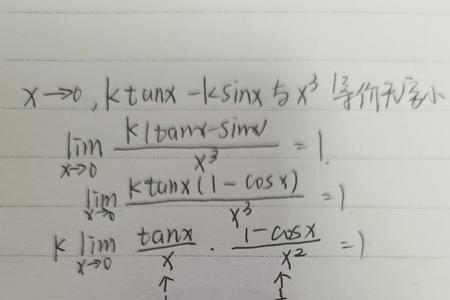 x→0, ktanx-ksinx与x³等价无穷小
lim x→0 k(tanx-sinx)/x³ = 1.
lim x→0 ktanx(1-cosx)/x³ = 1
k lim x→0 tanx/x · 1-cosx/x² = 1
↑ ↑